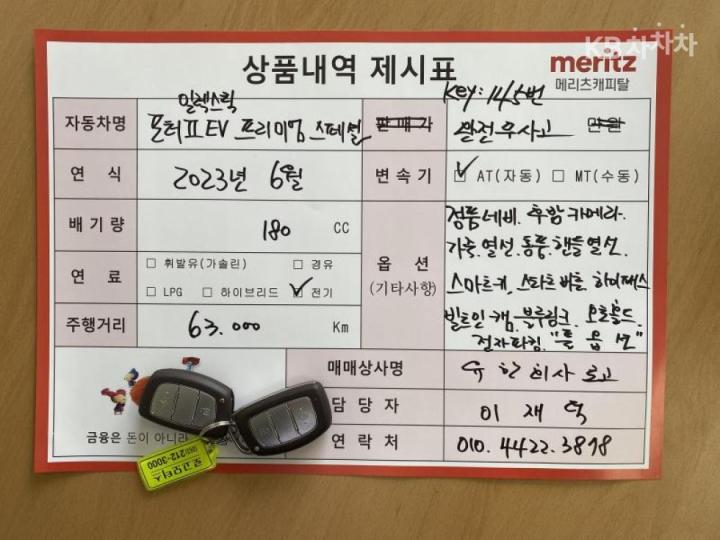 KB차차차
상품내역 제시표
meritz
메리츠캐피탈
Key: 145번
일렉스릭
자동차명
포터Ⅱ EV 프리미엄 스페셜
판매가
완전무사고
만원
연 식
2023년 6월
변속기
AT(자동) MT(수동)
배기량
180 CC
연 료
휘발유(가솔린) 경유
LPG 하이브리드 전기
옵 션
(기타사항)
정품네비. 후방카메라.
가죽.열선.통풍.핸들열선.
스마트키. 스타트버튼. 하이패스
빌트인캠. 블루링크. 오토홀드.
전자파킹. "풀옵션"
주행거리
63.000 Km
매매상사명
금융은 돈이 아니라
담 당 자
이 재
연 락 처
010.4422.3898
로고모터스
212-3000